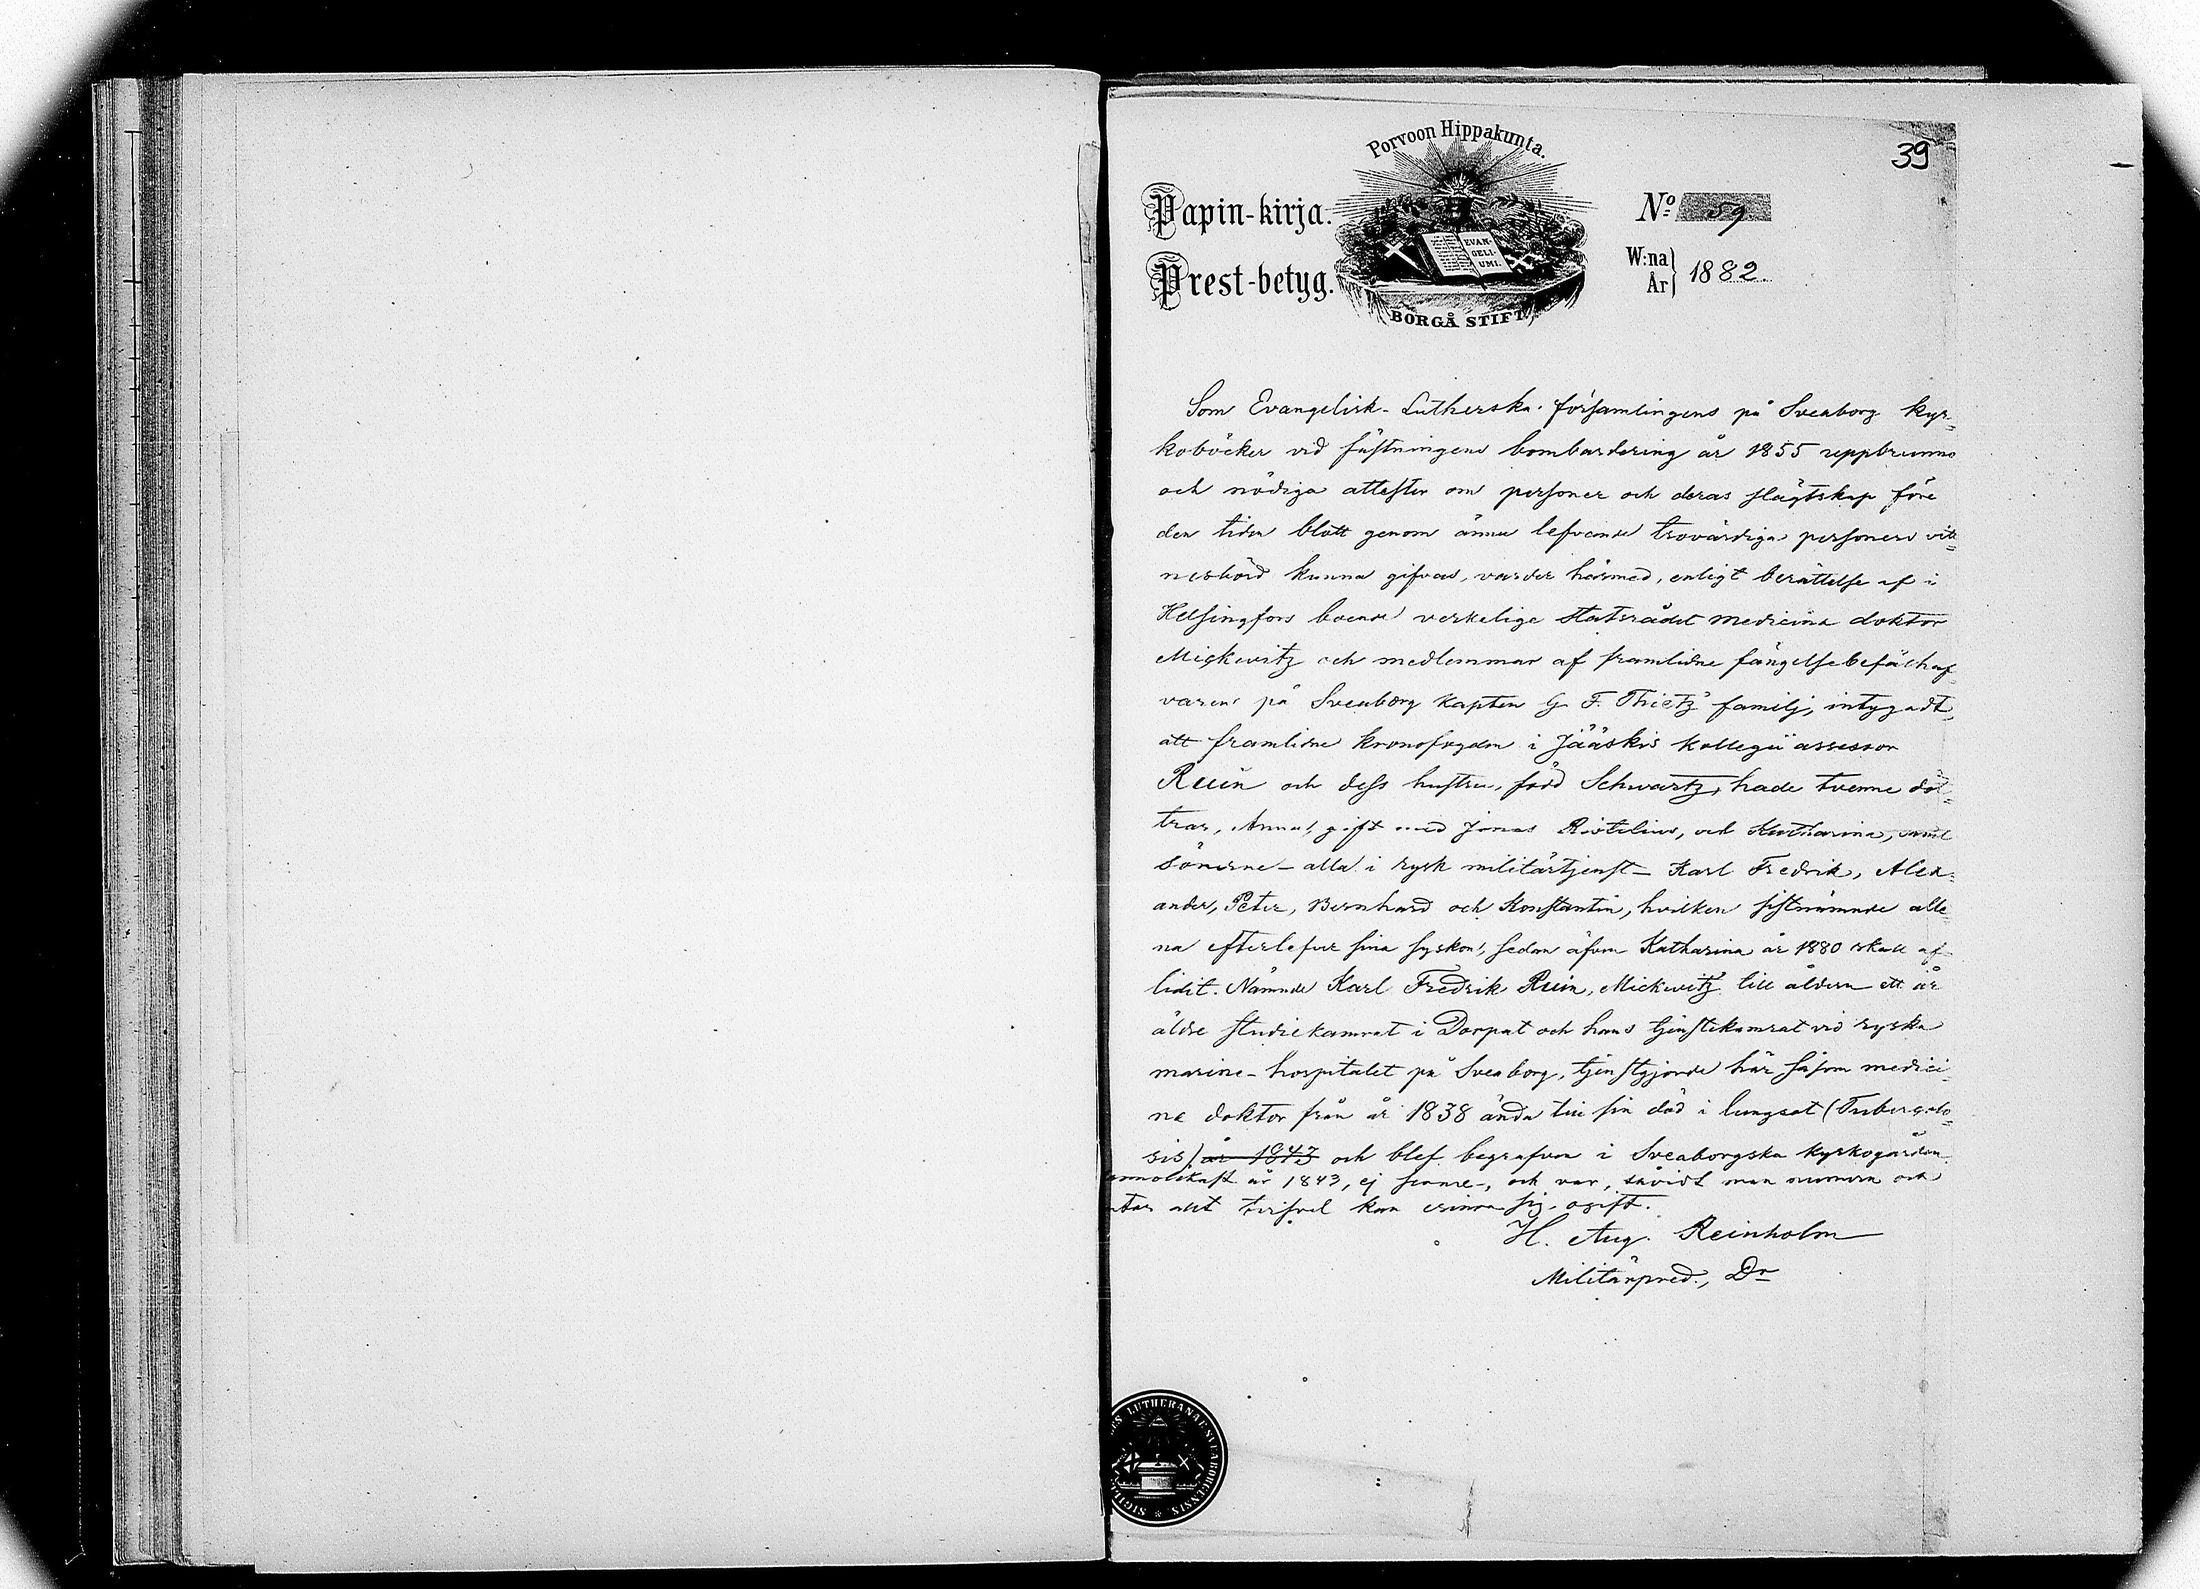 39
Porvoon Hippakunta.
Papin-kirja.
Prest-betyg.
EVAN-
GELI-
UMI.
BORGÅ STIFT
No 59
W:na
År
1882.
Som Evangelisk-Lutherska församlingens på Sveaborg kyr-
koböcker vid fästningens bombardering år 1855 uppbrunno
och nödiga attester om personer och deras slägtskap före
den tiden blott genom ännu lefvande trovärdiga personers vitt-
nesbörd kunna gifvas, varder härmed, enligt berättelse af i
Helsingfors boende verkelige statsrådet medicine doktor
Mickwitz och medlemmar af framlidne fängelsebefälhaf-
varen på Sveaborg kapten G. F. Thietz' familj, intygadt,
att framlidne kronofogden i Jääskis kollegii assessor
Ruin och dess hustru, född Schwartz, hade tvenne döt-
trar, Anna, gift med Jonas Ristelius, och Katharina, samt
sönerne - alla i rysk militärtjenst - Karl Fredrik, Alex-
ander, Peter, Bernhard och Konstantin, hvilken sistnämnde alle-
na efterlefver sina syskon, sedan äfven Katharina år 1880 skall af-
lidit. Nämnde Karl Fredrik Ruin, Mickwitz' till åldern ett år
äldre studiekamrat i Dorpat och hans tjenstekamrat vid ryska
marine-hospitalet på Sveaborg, tjenstgjorde här såsom medici-
ne doktor från år 1838 ända till sin död i lungsot (Tuberculo-
sis) år 1843 och blef begrafven i Sveaborgska kyrkogården
år 1843, ej senare, och var, såvidt man numera
kan erinra sig, ogift.
H. Aug. Reinholm
Militärpred., Dr
LUTHERANAE SVEABORGENSIS * SIGIL